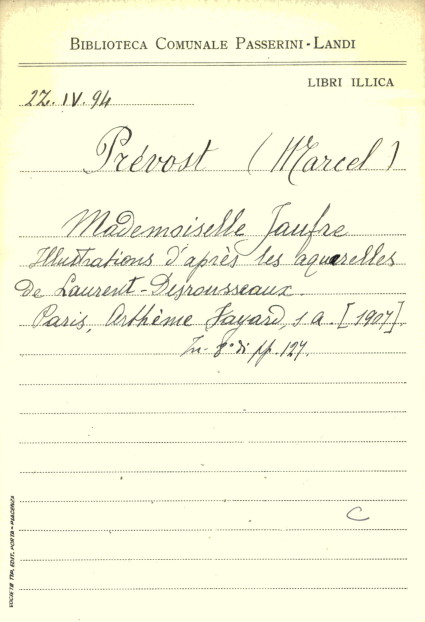 BIBLIOTECA COMUNALE PASSERINI-LANDI
LIBRI ILLICA
2Z.IV.94
Prévost (Marcel)
Mademoiselle Jaufre
Illustrations d'après les aquarelles
de Laurent-Desrousseaux.
Paris, Arthème Fayard, s a. [1907].
In-8° di pp. 127.
C
SOCIETÀ TIP. EDIT. PORTA - PIACENZA